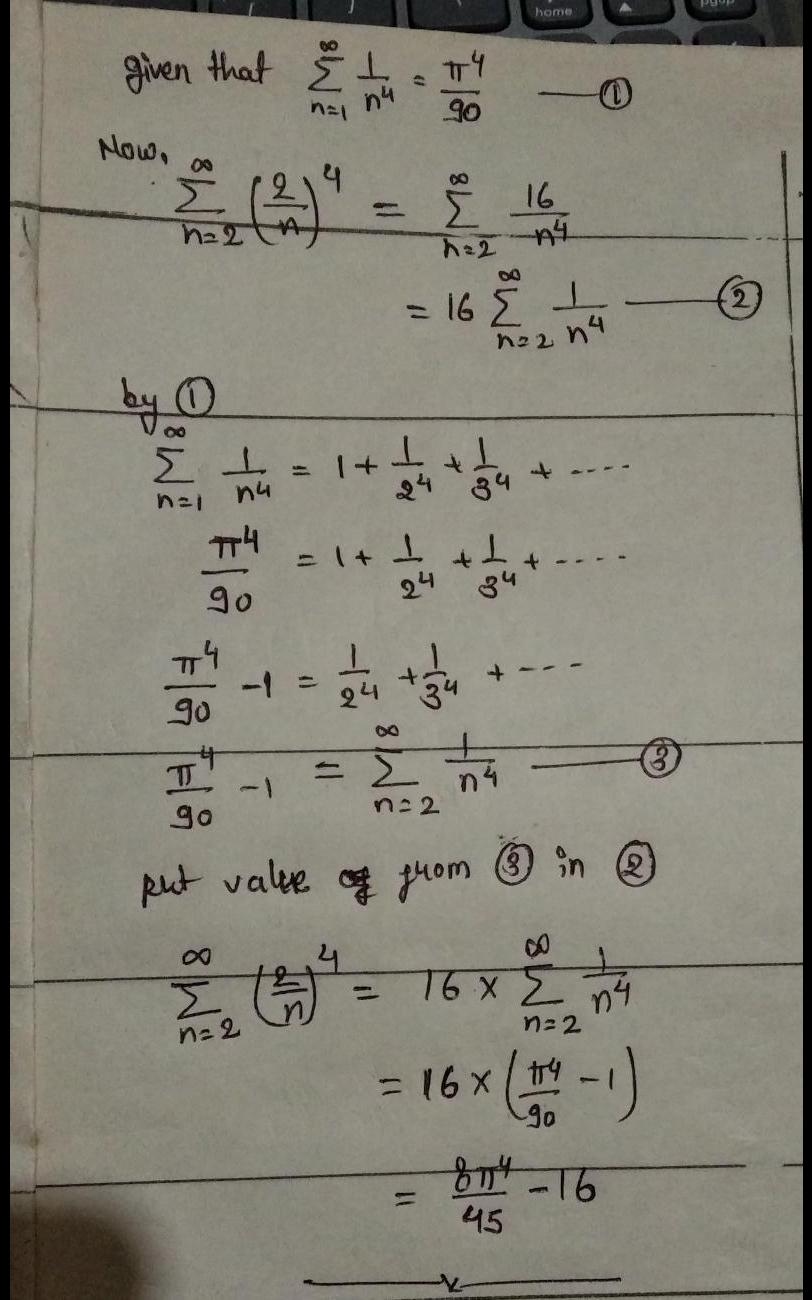 home
pgup
given that ∞∑n=1 1/n⁴ = π⁴/90 —— ①
Now,
∞∑n=2 (2/n)⁴ = ∞∑n=2 16/n⁴
= 16 ∞∑n=2 1/n⁴ —— ②
by ①
∞∑n=1 1/n⁴ = 1 + 1/2⁴ + 1/3⁴ + ....
π⁴/90 = 1 + 1/2⁴ + 1/3⁴ + ....
π⁴/90 - 1 = 1/2⁴ + 1/3⁴ + ---
π⁴/90 - 1 = ∞∑n=2 1/n⁴ —— ③
put value from ③ in ②
∞∑n=2 (2/n)⁴ = 16 × ∞∑n=2 1/n⁴
= 16 × (π⁴/90 - 1)
= 8π⁴/45 - 16